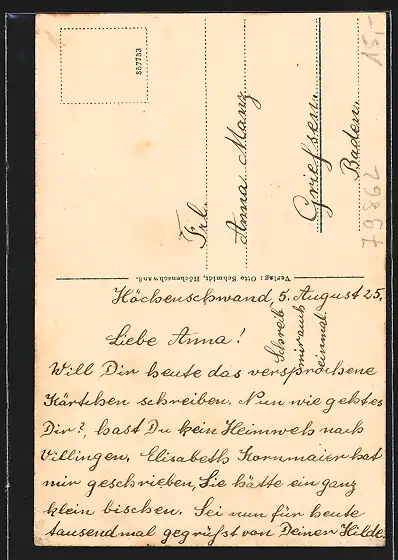 357733
Frl.
Anna Manz
Grießen.
Baden.
15,-
79862
Verlag: Otto Schmidt, Höchenschwand.
Höchenschwand, 5. August 25.
Schreib
mir auch
einmal.
Liebe Anna!
Will Dir heute das versprochene
Kärtchen schreiben. Nun wie geht es
Dir?, hast Du kein Heimweh nach
Villingen. Elisabeth Kornmaier hat
mir geschrieben, Sie hätte ein ganz
klein bischen. Sei nun für heute
tausendmal gegrüßt von Deiner Hilde.